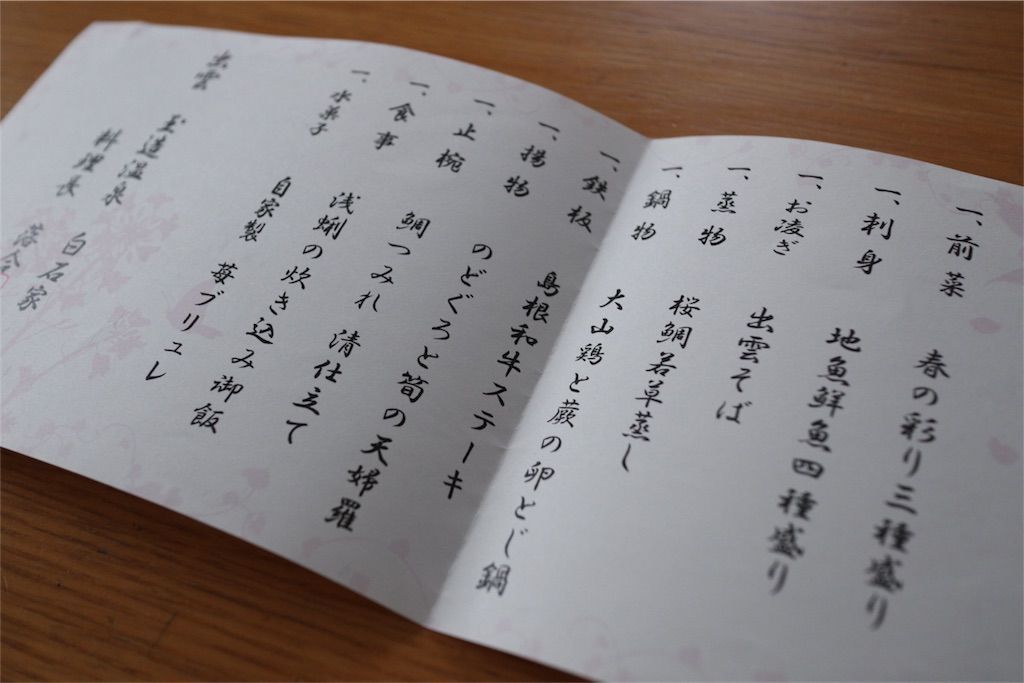 一、前菜 春の彩り三種盛り
一、刺身 地魚鮮魚四種盛り
一、お凌ぎ 出雲そば
一、蒸物 桜鯛若草蒸し
一、鍋物 大山鶏と蕨の卵とじ鍋
一、鉄板 島根和牛ステーキ
一、揚物 のどぐろと筍の天婦羅
一、止椀 鯛つみれ 清仕立て
一、食事 浅蜊の炊き込み御飯
一、水菓子 自家製 苺ブリュレ
出雲 玉造温泉 白石家
料理長 落合